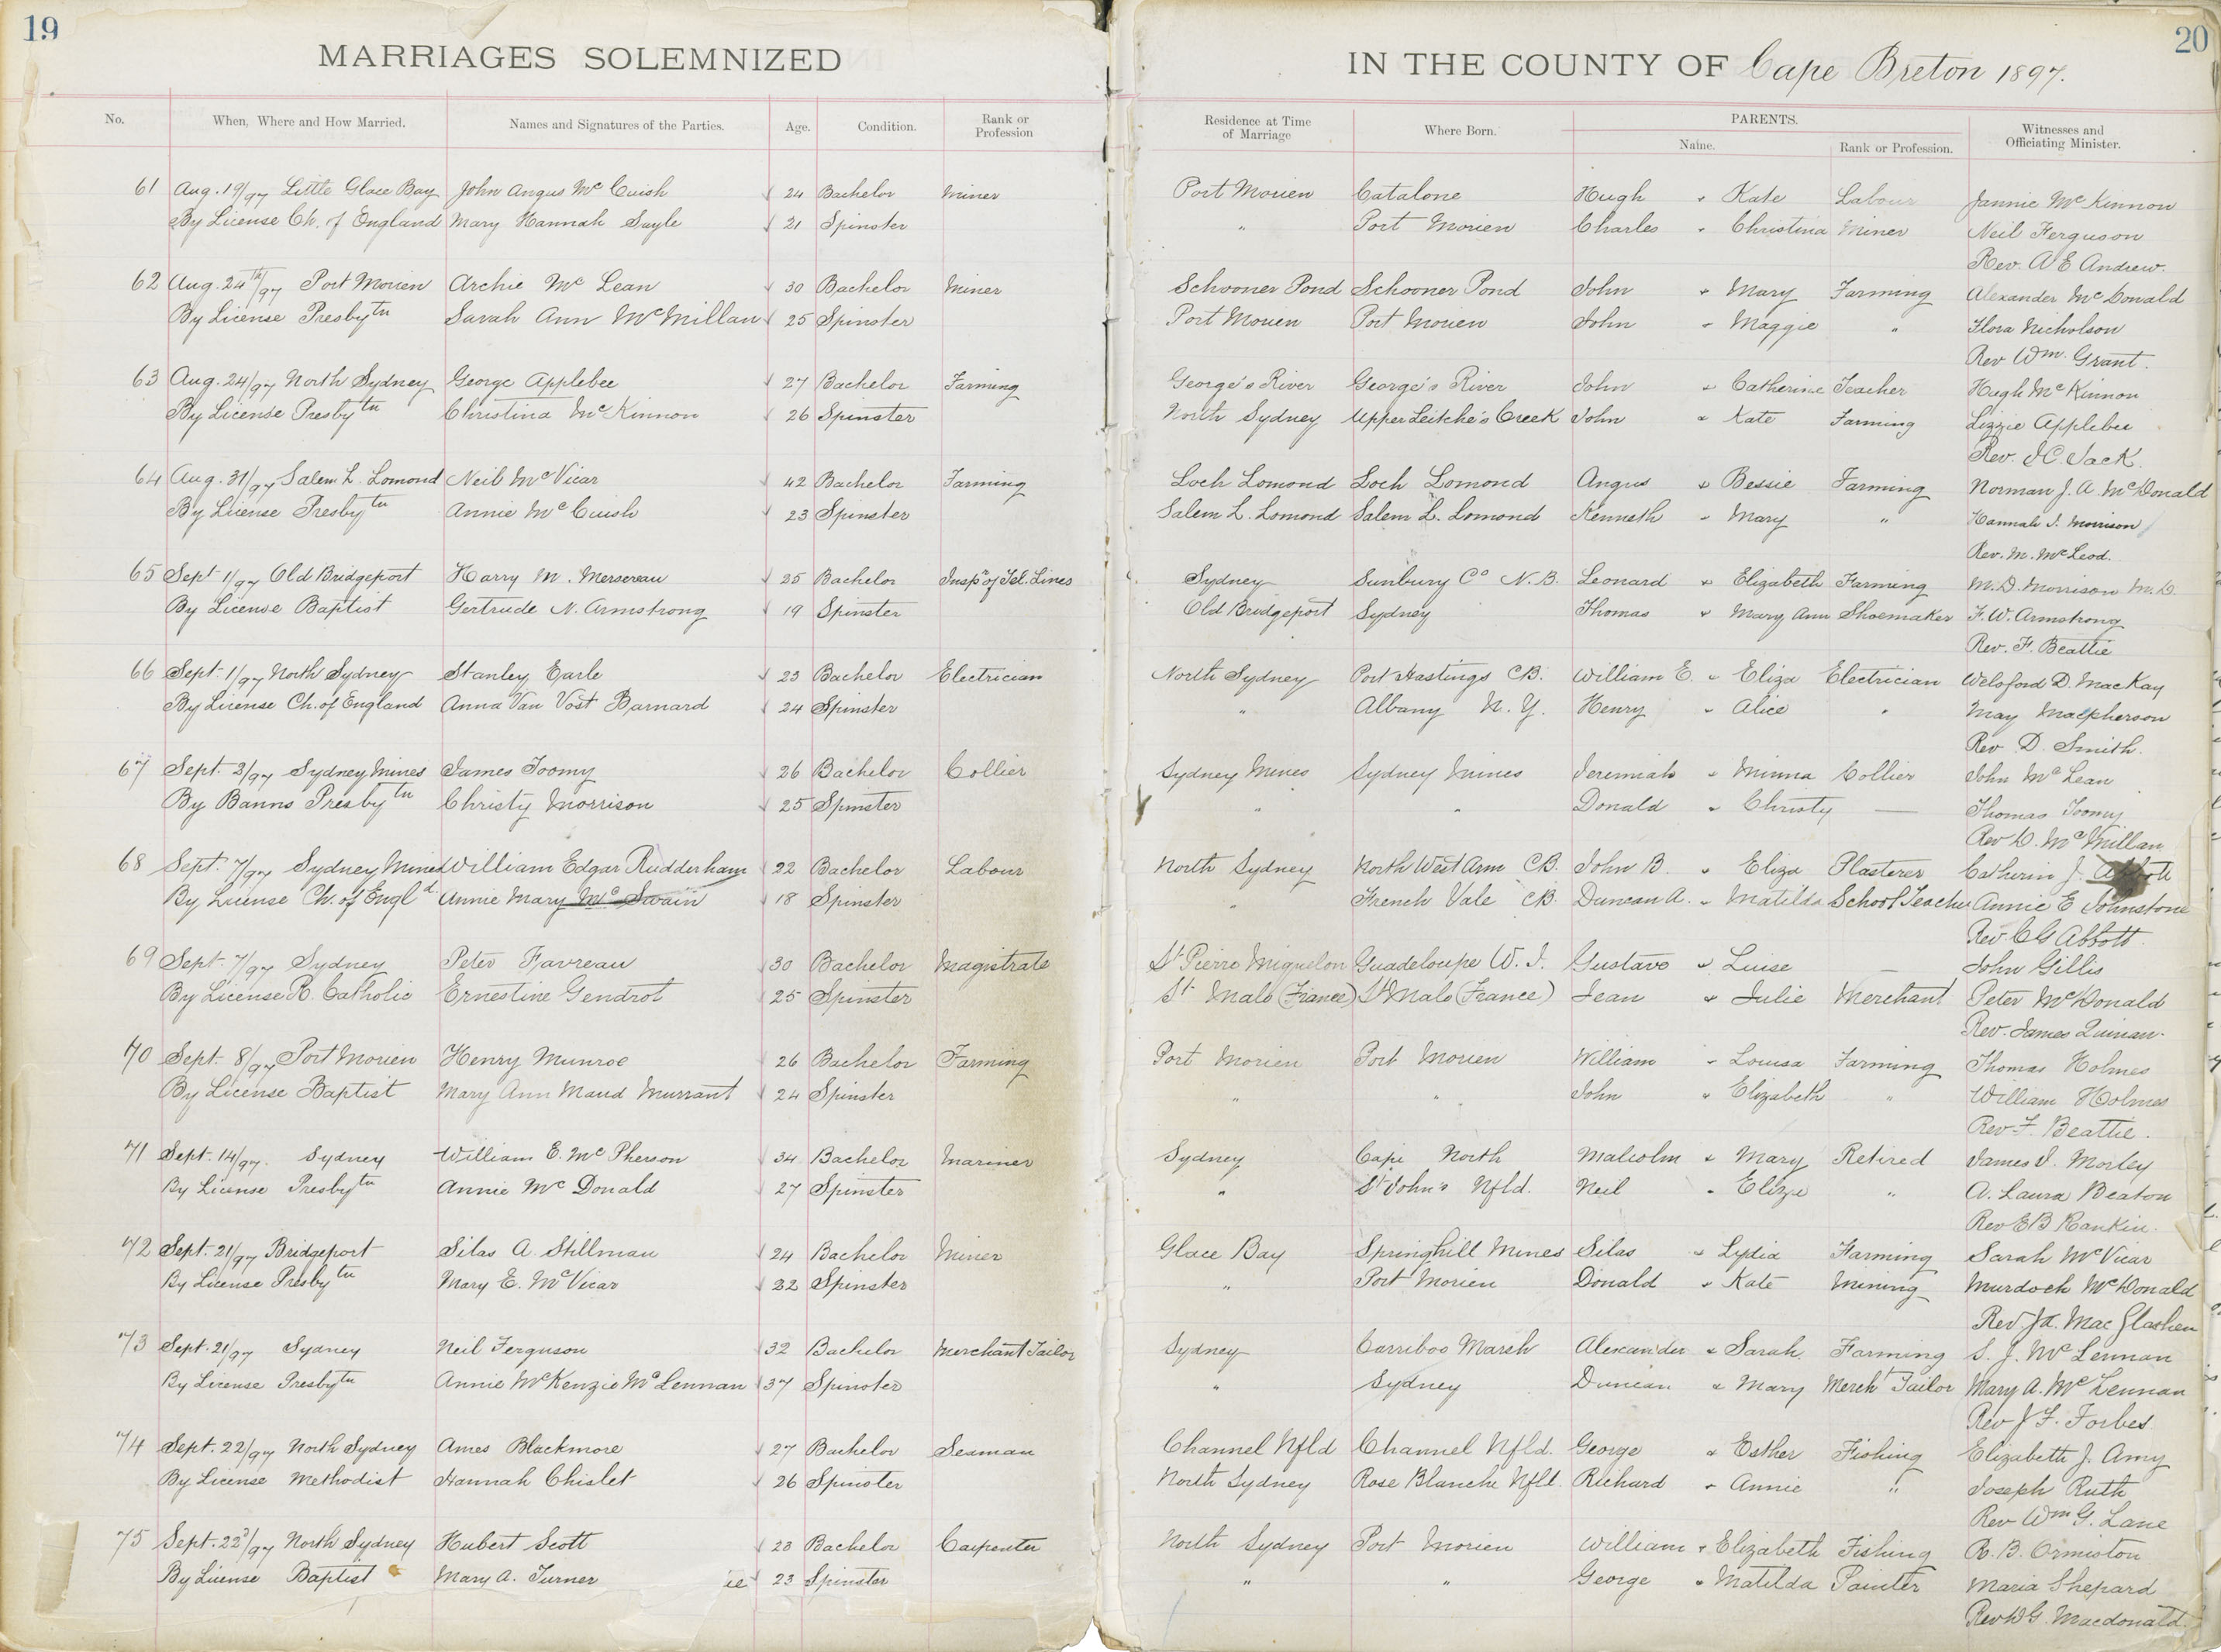 19
MARRIAGES SOLEMNIZED
No. When, Where and How Married. Names and Signatures of the Parties. Age. Condition. Rank or Profession
61 Aug. 19/97 Little Glace Bay John Angus Mc Cuish 24 Bachelor Miner
By License Ch. of England Mary Hannah Sayle 21 Spinster
62 Aug. 24th/97 Port Morien Archie Mc Lean 30 Bachelor Miner
By License Presbytn Sarah Ann McMillan 25 Spinster
63 Aug. 24/97 North Sydney George Applebee 27 Bachelor Farming
By License Presbytn Christina McKinnon 26 Spinster
64 Aug. 31/97 Salem L. Lomond Neil McVicar 42 Bachelor Farming
By License Presbytn Annie McCuish 23 Spinster
65 Sept 1/97 Old Bridgeport Harry M. Mersereau 25 Bachelor Inspr of Tel. Lines
By License Baptist Gertrude N. Armstrong 19 Spinster
66 Sept. 1/97 North Sydney Stanley Earle 23 Bachelor Electrician
By License Ch. of England Anna Van Vost Barnard 24 Spinster
67 Sept. 2/97 Sydney Mines James Toomy 26 Bachelor Collier
By Banns Presbytn Christy Morrison 25 Spinster
68 Sept. 7/97 Sydney Mines William Edgar Rudderham 22 Bachelor Labour
By License Ch. of Engld. Annie Mary Mc Swain 18 Spinster
69 Sept. 7/97 Sydney Peter Favreau 30 Bachelor Magistrate
By License R. Catholic Ernestine Gendrot 25 Spinster
70 Sept. 8/97 Port Morien Henry Munroe 26 Bachelor Farming
By License Baptist Mary Ann Maud Murrant 24 Spinster
71 Sept. 14/97. Sydney William E. McPherson 34 Bachelor Mariner
By License Presbytn Annie Mc Donald 27 Spinster
72 Sept. 21/97 Bridgeport Silas A. Stillman 24 Bachelor Miner
By License Presbytn Mary E. McVicar 22 Spinster
73 Sept. 21/97 Sydney Neil Ferguson 32 Bachelor Merchant Tailor
By License Presbytn Annie McKenzie McLennan 37 Spinster
74 Sept. 22/97 North Sydney Ames Blackmore 27 Bachelor Seaman
By License Methodist Hannah Chislet 26 Spinster
75 Sept. 22d/97 North Sydney Hubert Scott 23 Bachelor Carpenter
By License Baptist Mary A. Turner ie 23 Spinster
20
IN THE COUNTY OF Cape Breton 1897.
Residence at Time of Marriage Where Born. PARENTS. Name. Rank or Profession. Witnesses and Officiating Minister.
Port Morien Catalone Hugh & Kate Labour Jannie McKinnon
" Port Morien Charles & Christina Miner Neil Ferguson
Rev. A E Andrew.
Schooner Pond Schooner Pond John & Mary Farming Alexander McDonald
Port Morien Port Morien John & Maggie " Flora Nicholson
Rev Wm. Grant.
George's River George's River John & Catherine Teacher Hugh McKinnon
North Sydney Upper Leitche's Creek John & Kate Farming Lizzie Applebee
Rev. J.C. Jack.
Loch Lomond Loch Lomond Angus & Bessie Farming Norman J. A. McDonald
Salem L. Lomond Salem L. Lomond Kenneth & Mary " Hannah J. Morrison
Rev. M. McLeod.
Sydney Sunbury Co N.B. Leonard & Elizabeth Farming M.D. Morrison M.D.
Old Bridgeport Sydney Thomas & Mary Ann Shoemaker F. W. Armstrong
Rev. F. Beattie
North Sydney Port Hastings CB. William E. & Eliza Electrician Welsford D. MacKay
" Albany N.Y. Henry & Alice " May Macpherson
Rev D. Smith.
Sydney Mines Sydney Mines Jeremiah & Minna Collier John McLean
" " Donald & Christy — Thomas Toomy
Rev D. McMillan
North Sydney North West Arm CB. John B. & Eliza Plasterer Catherin J. Abbott
" French Vale CB. Duncan A. & Matilda School Teacher Annie E Johnstone
Rev C G Abbott.
St Pierre Miquelon Guadeloupe W. I. Gustave & Luise — John Gillis
St Malo (France) St Malo (France) Jean & Julie Merchant Peter McDonald
Rev. James Quinan.
Port Morien Port Morien William & Louisa Farming Thomas Holmes
" " John & Elizabeth " William Holmes
Rev. F. Beattie.
Sydney Cape North Malcolm & Mary Retired James J. Morley
" St John's Nfld. Neil & Eliza " A. Laura Beaton
Rev E B Rankin.
Glace Bay Springhill Mines Silas & Lydia Farming Sarah McVicar
" Port Morien Donald & Kate Mining Murdoch McDonald
Rev. J.A. MacGlashen
Sydney Carriboo Marsh Alexander & Sarah Farming S. J. McLennan
" Sydney Duncan & Mary Mercht Tailor Mary A. McLennan
Rev J F. Forbes
Channel Nfld Channel Nfld. George & Esther Fishing Elizabeth J. Amy
North Sydney Rose Blanche Nfld. Richard & Annie " Joseph Ruth
Rev Wm G. Lane
North Sydney Port Morien William & Elizabeth Fishing R. B. Ormiston
" " George & Matilda Painter Maria Shepard
Rev D G. Macdonald.